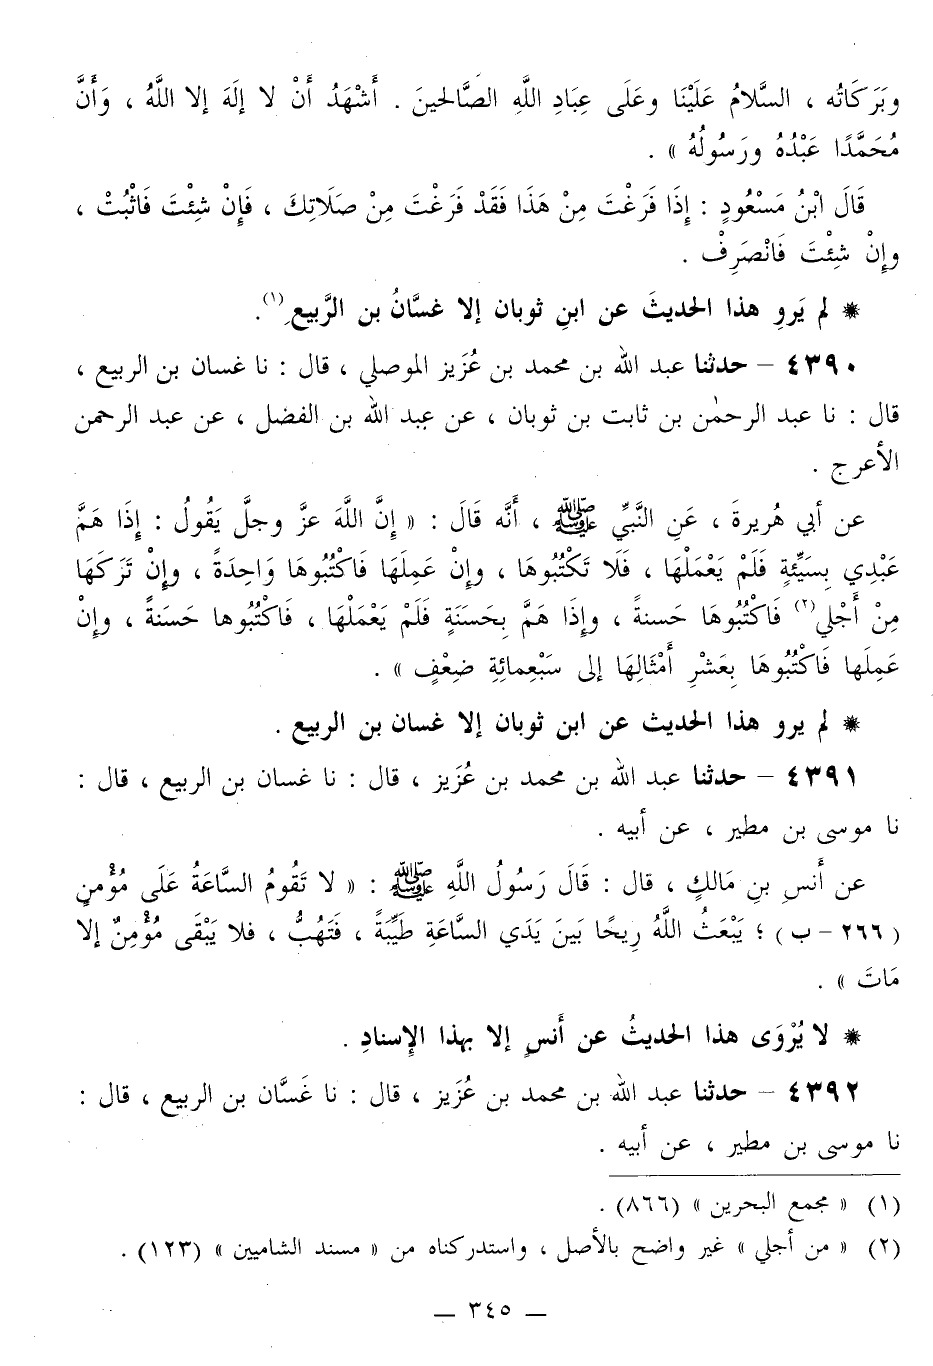 وبَرَكَاتُه ، السَّلامُ عَلَيْنَا وعَلَى عِبَادِ اللَّهِ الصَّالحينَ . أَشْهَدُ أَنْ لا إلَهَ إلا اللَّهُ ، وَأَنَّ
مُحَمَّدًا عَبْدُهُ ورَسُولُهُ » .
قَالَ ابْنُ مَسْعُودٍ : إِذَا فَرَغْتَ مِنْ هَذَا فَقَدْ فَرَغْتَ مِنْ صَلَاتِكَ ، فَإِنْ شِئْتَ فَاثْبُتْ ،
وإِنْ شِئْتَ فَانْصَرِفْ .
※ لم يَروِ هذا الحديثَ عن ابنِ ثوبان إلا غسَّانُ بن الرَّبيع(١).
٤٣٩٠ – حدثنا عبد الله بن محمد بن عُزَيز الموصلي ، قال : نا غسان بن الربيع ،
قال : نا عبد الرحمٰن بن ثابت بن ثوبان ، عن عبد الله بن الفضل ، عن عبد الرحمن
الأعرج .
عن أبي هُريرةَ ، عَنِ النَّبيِّ ﷺ ، أَنَّه قَالَ : « إِنَّ اللَّهَ عزَّ وجلَّ يَقُولُ : إِذَا هَمَّ
عَبْدِي بِسَيِّئةٍ فَلَمْ يَعْمَلْهَا ، فَلَا تَكْتُبُوهَا ، وإِنْ عَمِلَهَا فَاكْتُبُوهَا وَاحِدَةً ، وإِنْ تَرَكَهَا
مِنْ أَجْلي(٢) فَاكْتُبُوهَا حَسنةً ، وإِذَا هَمَّ بِحَسَنَةٍ فَلَمْ يَعْمَلْهَا ، فَاكْتُبُوها حَسَنةً ، وإِنْ
عَمِلَها فَاكْتُبُوهَا بِعَشْرِ أَمْثَالِهَا إلى سَبْعِمائِةِ ضِعْفٍ » .
※ لم يرو هذا الحديث عن ابن ثوبان إلا غسان بن الربيع .
٤٣٩١ – حدثنا عبد الله بن محمد بن عُزَيز ، قال : نا غسان بن الربيع ، قال :
نا موسى بن مطير ، عن أبيه .
عن أَنسِ بنِ مَالكٍ ، قال : قَالَ رَسُولُ اللَّهِ ﷺ : « لا تَقُومُ السَّاعَةُ عَلَى مُؤْمنٍ
( ٢٦٦ – ب ) ؛ يَبْعَثُ اللَّهُ رِيحًا بَينَ يَدَي السَّاعَةِ طَيِّبَةً ، فَتَهُبُّ ، فلا يَبْقَى مُؤْمِنٌ إلا
مَاتَ » .
※ لا يُرْوَى هذا الحديثُ عن أَنسٍ إلا بهذا الإسنادِ .
٤٣٩٢ – حدثنا عبد الله بن محمد بن عُزَيز ، قال : نا غَسَّان بن الربيع ، قال :
نا موسى بن مطير ، عن أبيه .
(١) « مجمع البحرين » (٨٦٦) .
(٢) « من أجلي » غير واضح بالأصل ، واستدركناه من « مسند الشاميين » (١٢٣) .
— ٣٤٥ —